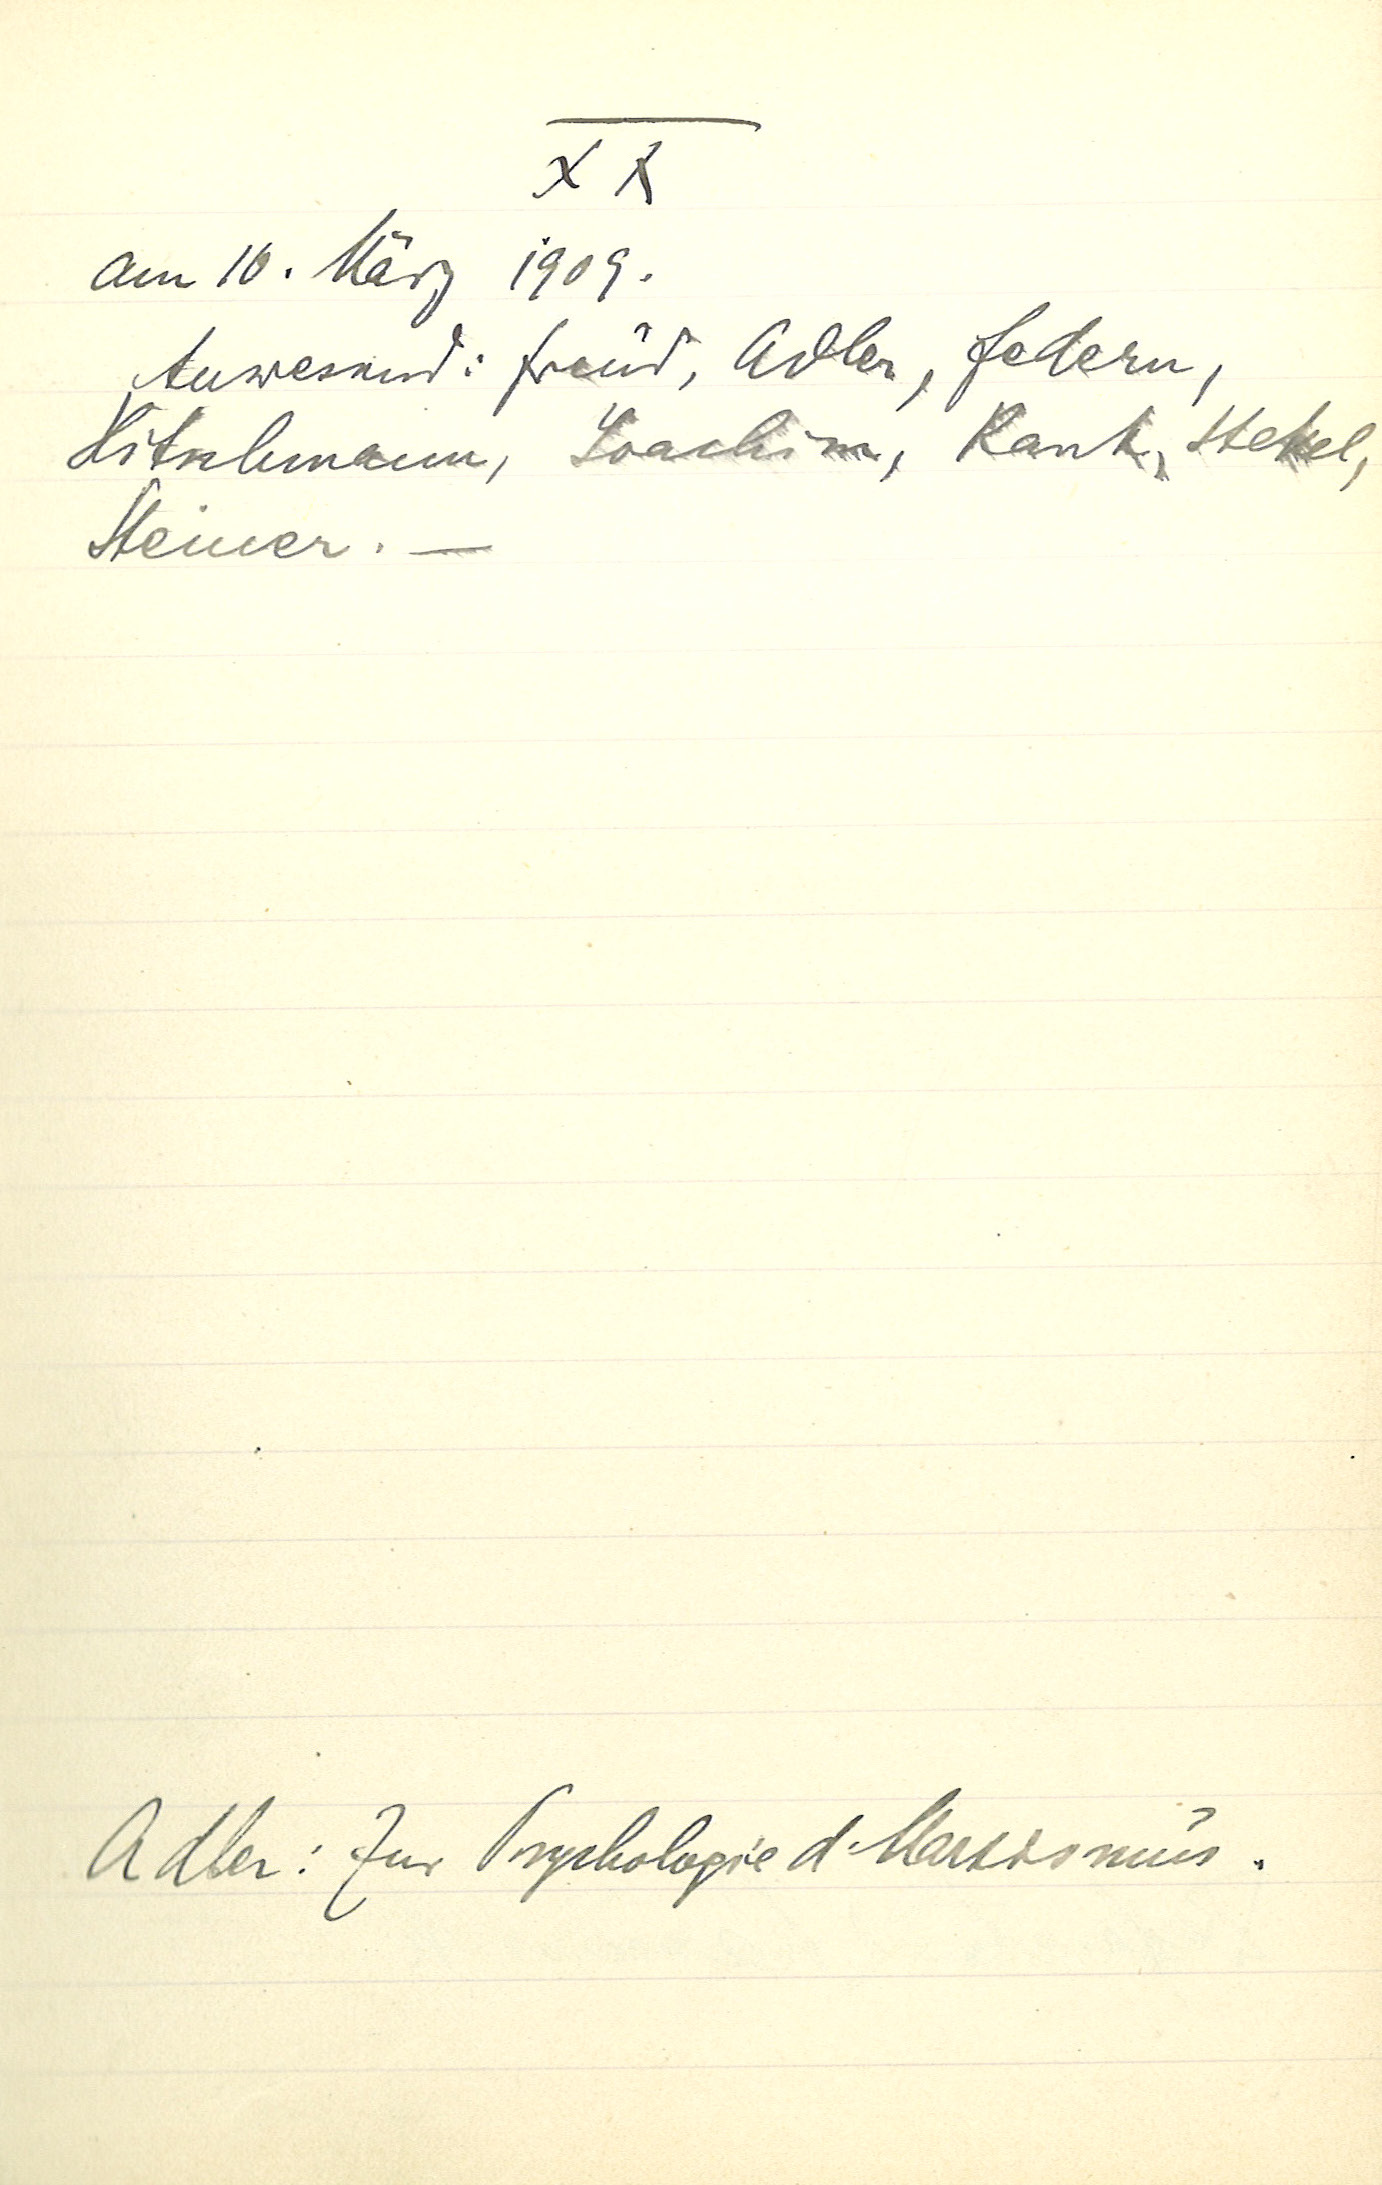 XX
am 10. März 1909.
Anwesend: Freud, Adler, Federn,
Hitschmann, Joachim, Rank, Stekel,
Steiner. —
Adler: Zur Psychologie d. Marxismus.